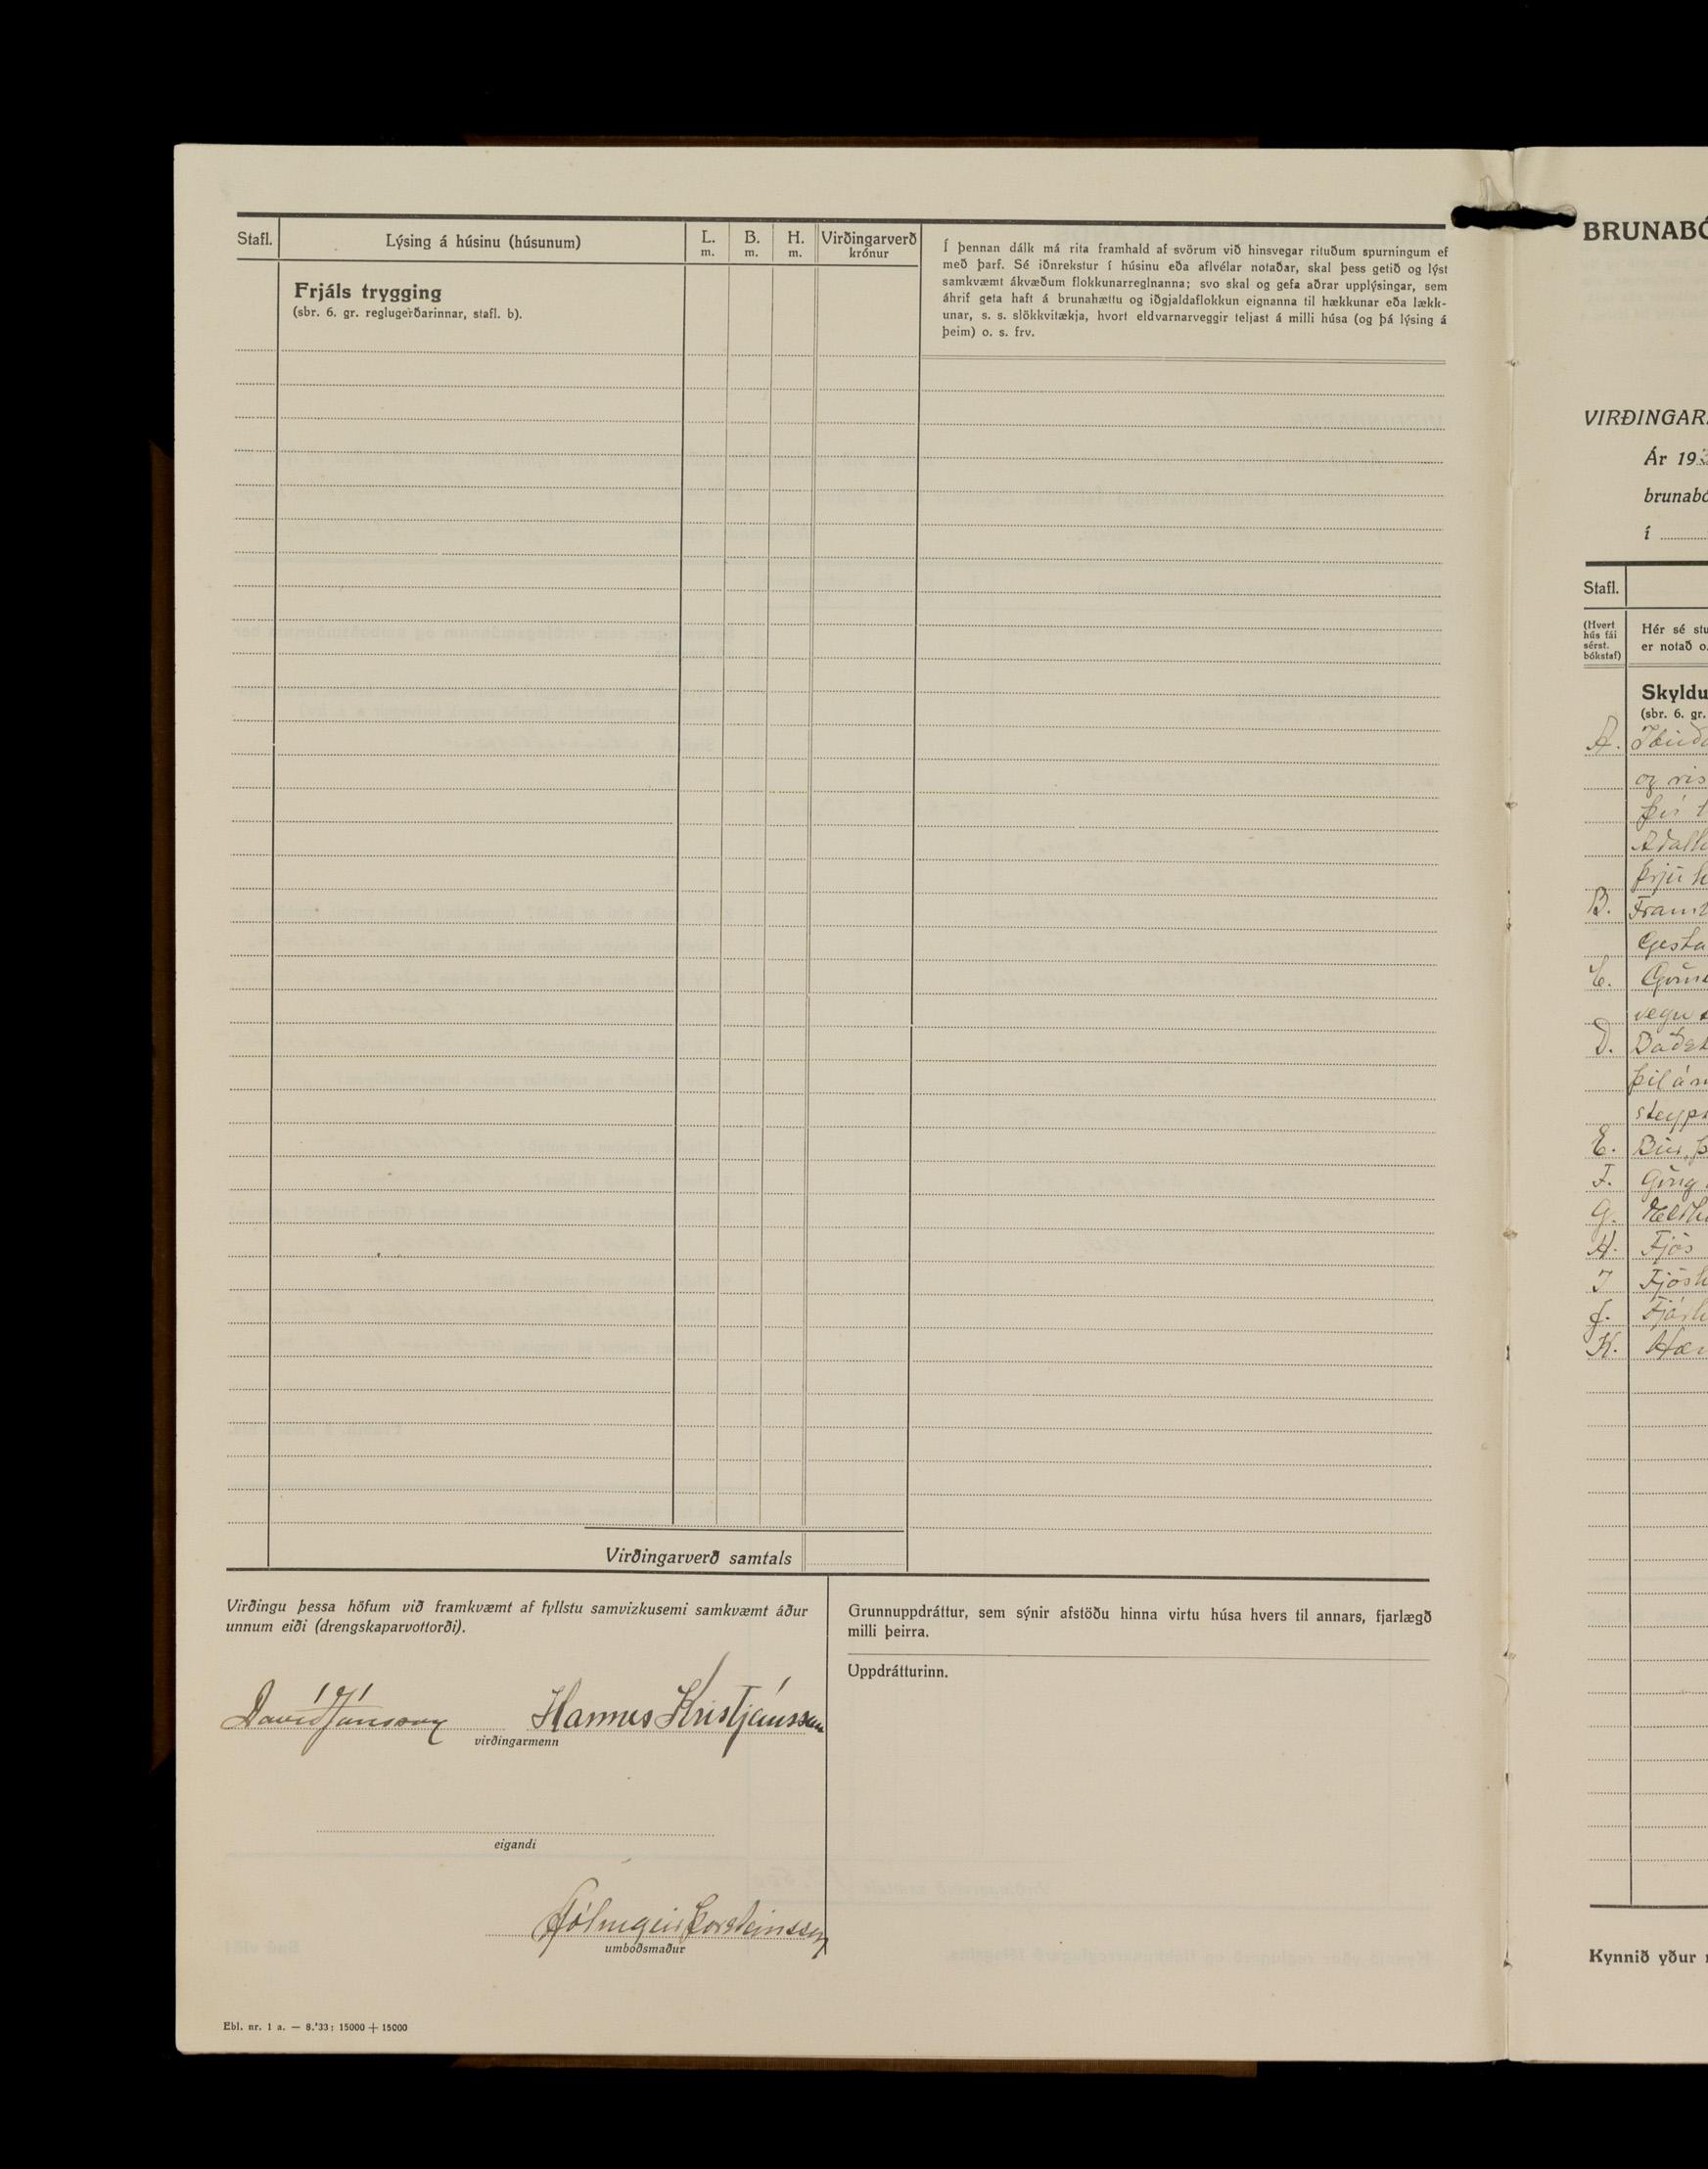 Stafl.
Lýsing á húsinu (húsunum)
L.
m.
B.
m.
H.
m.
Virðingarverð
krónur
Í þennan dálk má rita framhald af svörum við hinsvegar rituðum spurningum ef
með þarf. Sé iðnrekstur í húsinu eða aflvélar notaðar, skal þess getið og lýst
samkvæmt ákvæðum flokkunarreglnanna; svo skal og gefa aðrar upplýsingar, sem
áhrif geta haft á brunahættu og iðgjaldaflokkun eignanna til hækkunar eða lækk-
unar, s. s. slökkvitækja, hvort eldvarnarveggir teljast á milli húsa (og þá lýsing á
þeim) o. s. frv.
Frjáls trygging
(sbr. 6. gr. reglugerðarinnar, stafl. b).
Virðingarverð samtals
Virðingu þessa höfum við framkvæmt af fyllstu samvizkusemi samkvæmt áður
unnum eiði (drengskaparvottorði).
Davíð Jónsson Hannes Kristjánsson
virðingarmenn
eigandi
Hólmgeir Þorsteinsson
umboðsmaður
Grunnuppdráttur, sem sýnir afstöðu hinna virtu húsa hvers til annars, fjarlægð
milli þeirra.
Uppdrátturinn.
Ebl. nr. 1 a. — 8.'33: 15000 + 15000
BRUNABÓ
VIRÐINGAR
Ár 193
brunabó
í
Stafl.
(Hvert
hús fái
sérst.
bókstaf)
Hér sé stu
er notað o.
Skyldu
(sbr. 6. gr.
A. Íbúða
og ris
því t
Aðalh
þrjú h
B. Framh
Gesta
C.
vegu
D. Baðst
þil á
steyp
E. Búr, þ
F. Göng
G. Eldh
H. Fjós
I Fjósh
J. Fjárh
K. Hæn
Kynnið yður